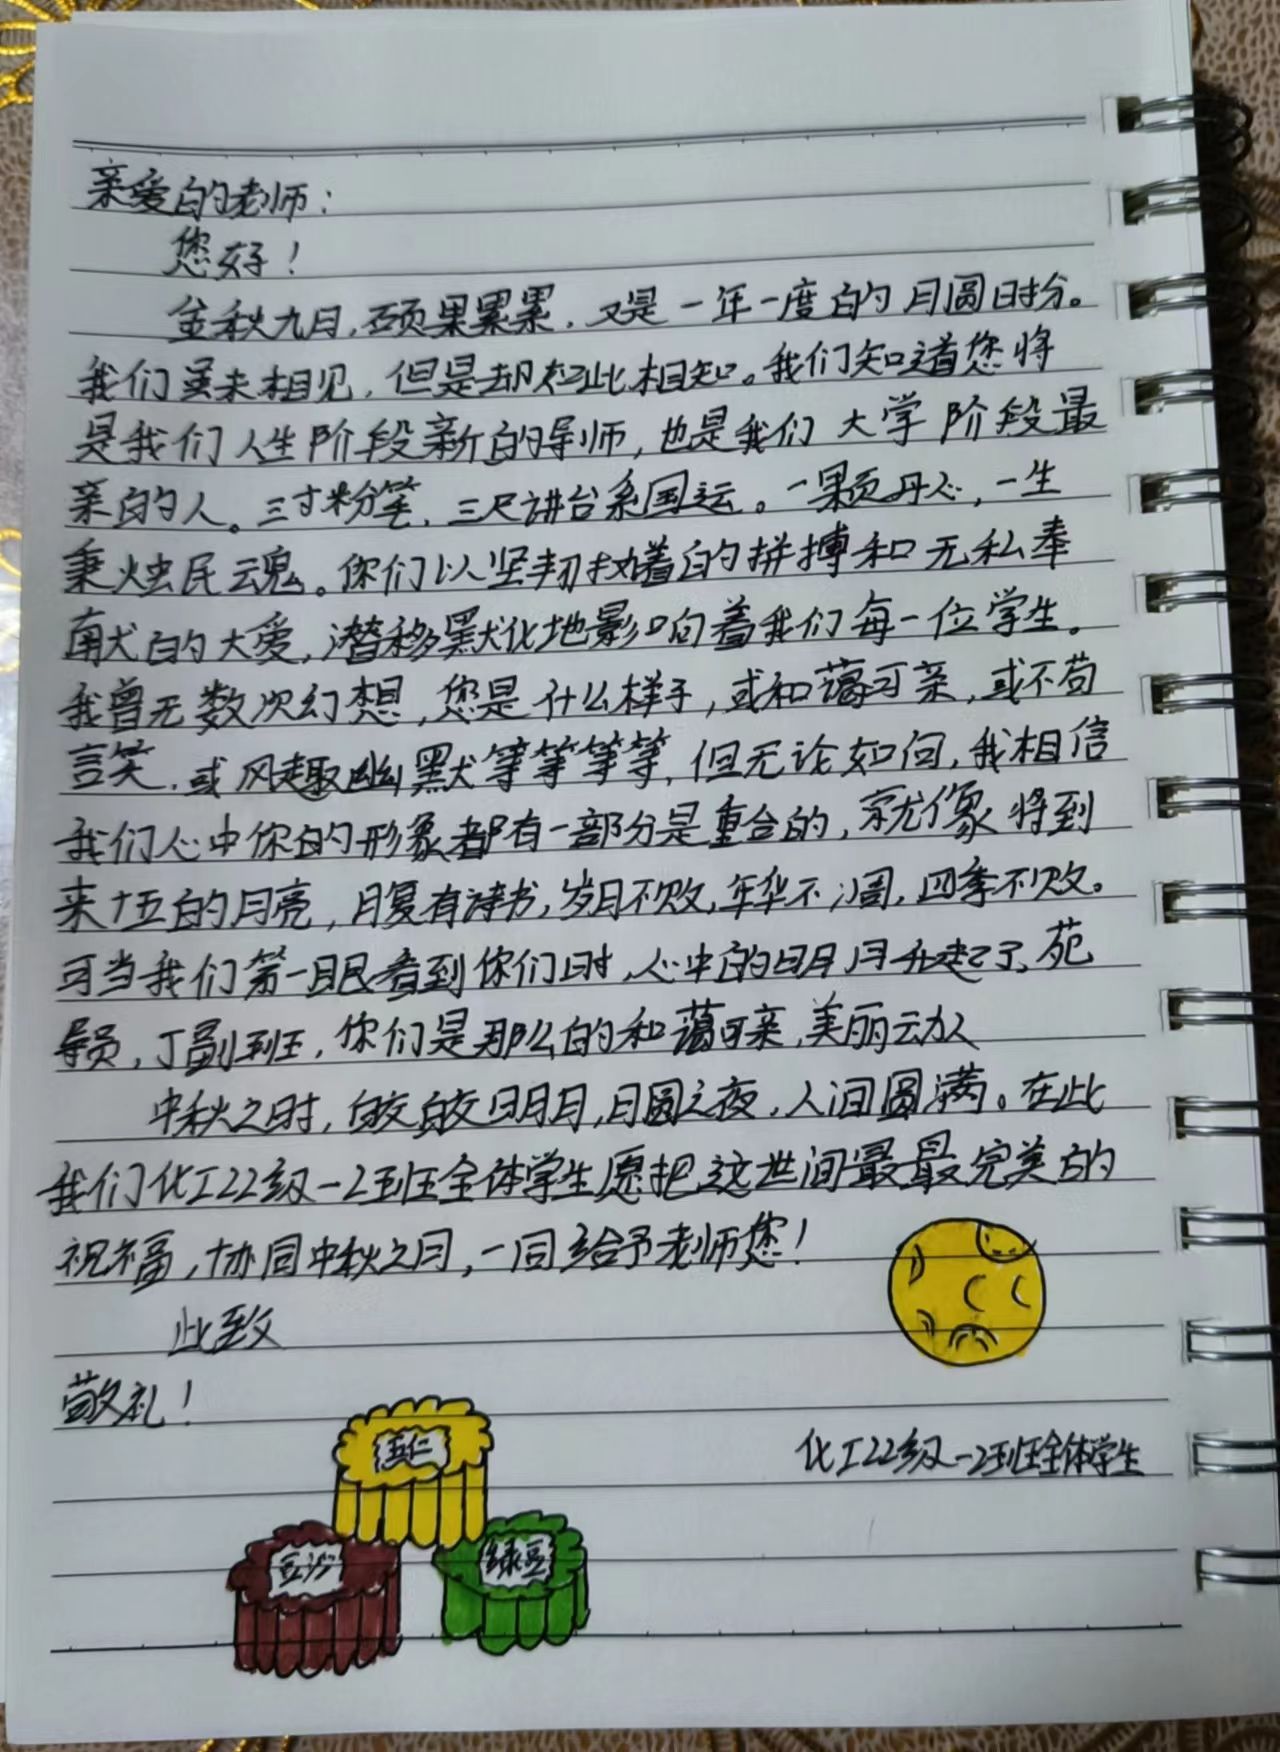 亲爱的老师：
您好！
金秋九月，硕果累累，又是一年一度的月圆时分。
我们虽未相见，但是却彼此相知。我们知道您将
是我们人生阶段新的导师，也是我们大学阶段最
亲的人。三寸粉笔，三尺讲台系国运。一颗丹心，一生
秉烛民魂。你们以坚韧执着的拼搏和无私奉
献的大爱，潜移默化地影响着我们每一位学生。
我曾无数次幻想，您是什么样子，或和蔼可亲，或不苟
言笑，或风趣幽默等等等等，但无论如何，我相信
我们心中你的形象都有一部分是重合的，就像将到
来十五的月亮，腹有诗书，岁月不败，年华不凋，四季不败。
可当我们第一眼看到你们时，心中的明月升起了，苑
导员，丁副班，你们是那么的和蔼可亲，美丽动人
中秋之时，皎皎明月，月圆之夜，人间圆满。在此
我们化工22级-2班全体学生愿把这世间最最完美的
祝福，协同中秋之月，一同给予老师您！
此致
敬礼！
五仁
化工22级-2班全体学生
豆沙
绿豆